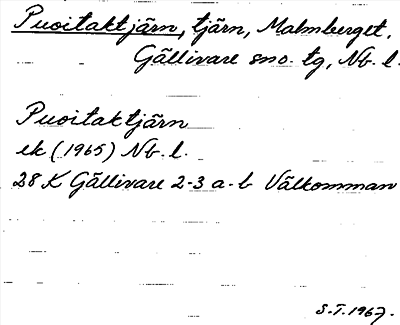 Puoitaktjärn, tjärn, Malmberget,
Gällivare sno. tg, Nb. l.
Puoitaktjärn
ek (1965) Nb. l.
28 K Gällivare 2-3 a-b Välkomman
S.T. 1967.